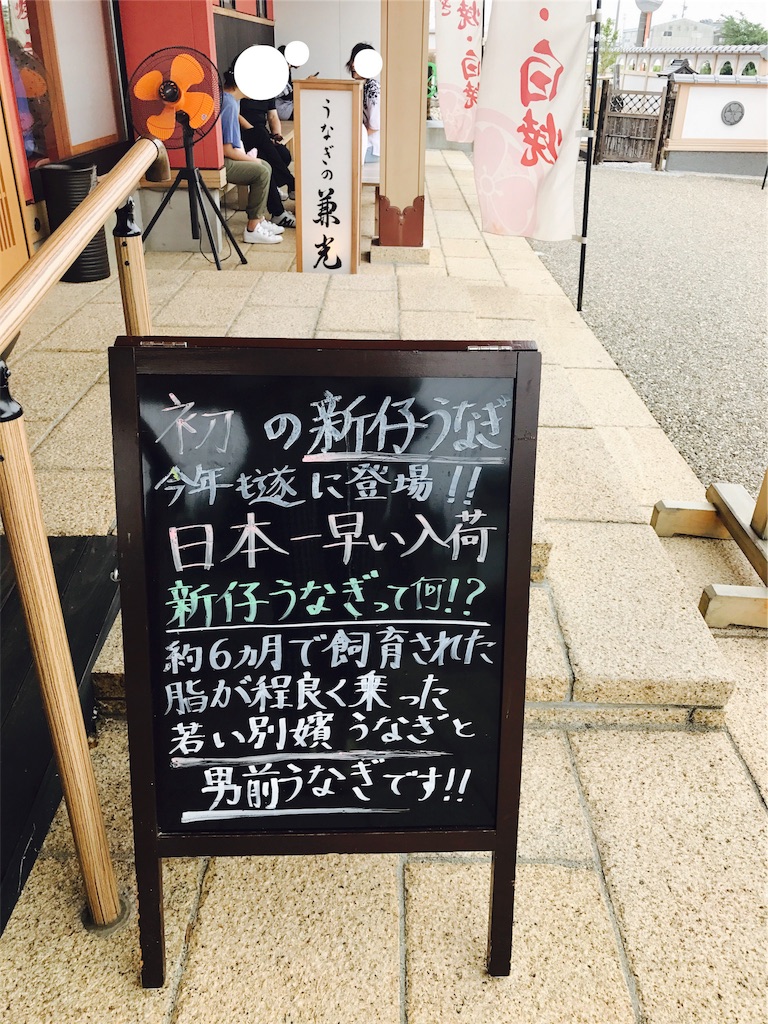 うなぎの兼光
・白焼
焼・白焼
初の新仔うなぎ
今年も遂に登場!!
日本一早い入荷
新仔うなぎって何!?
約6カ月で飼育された
脂が程良く乗った
若い別嬪うなぎと
男前うなぎです!!